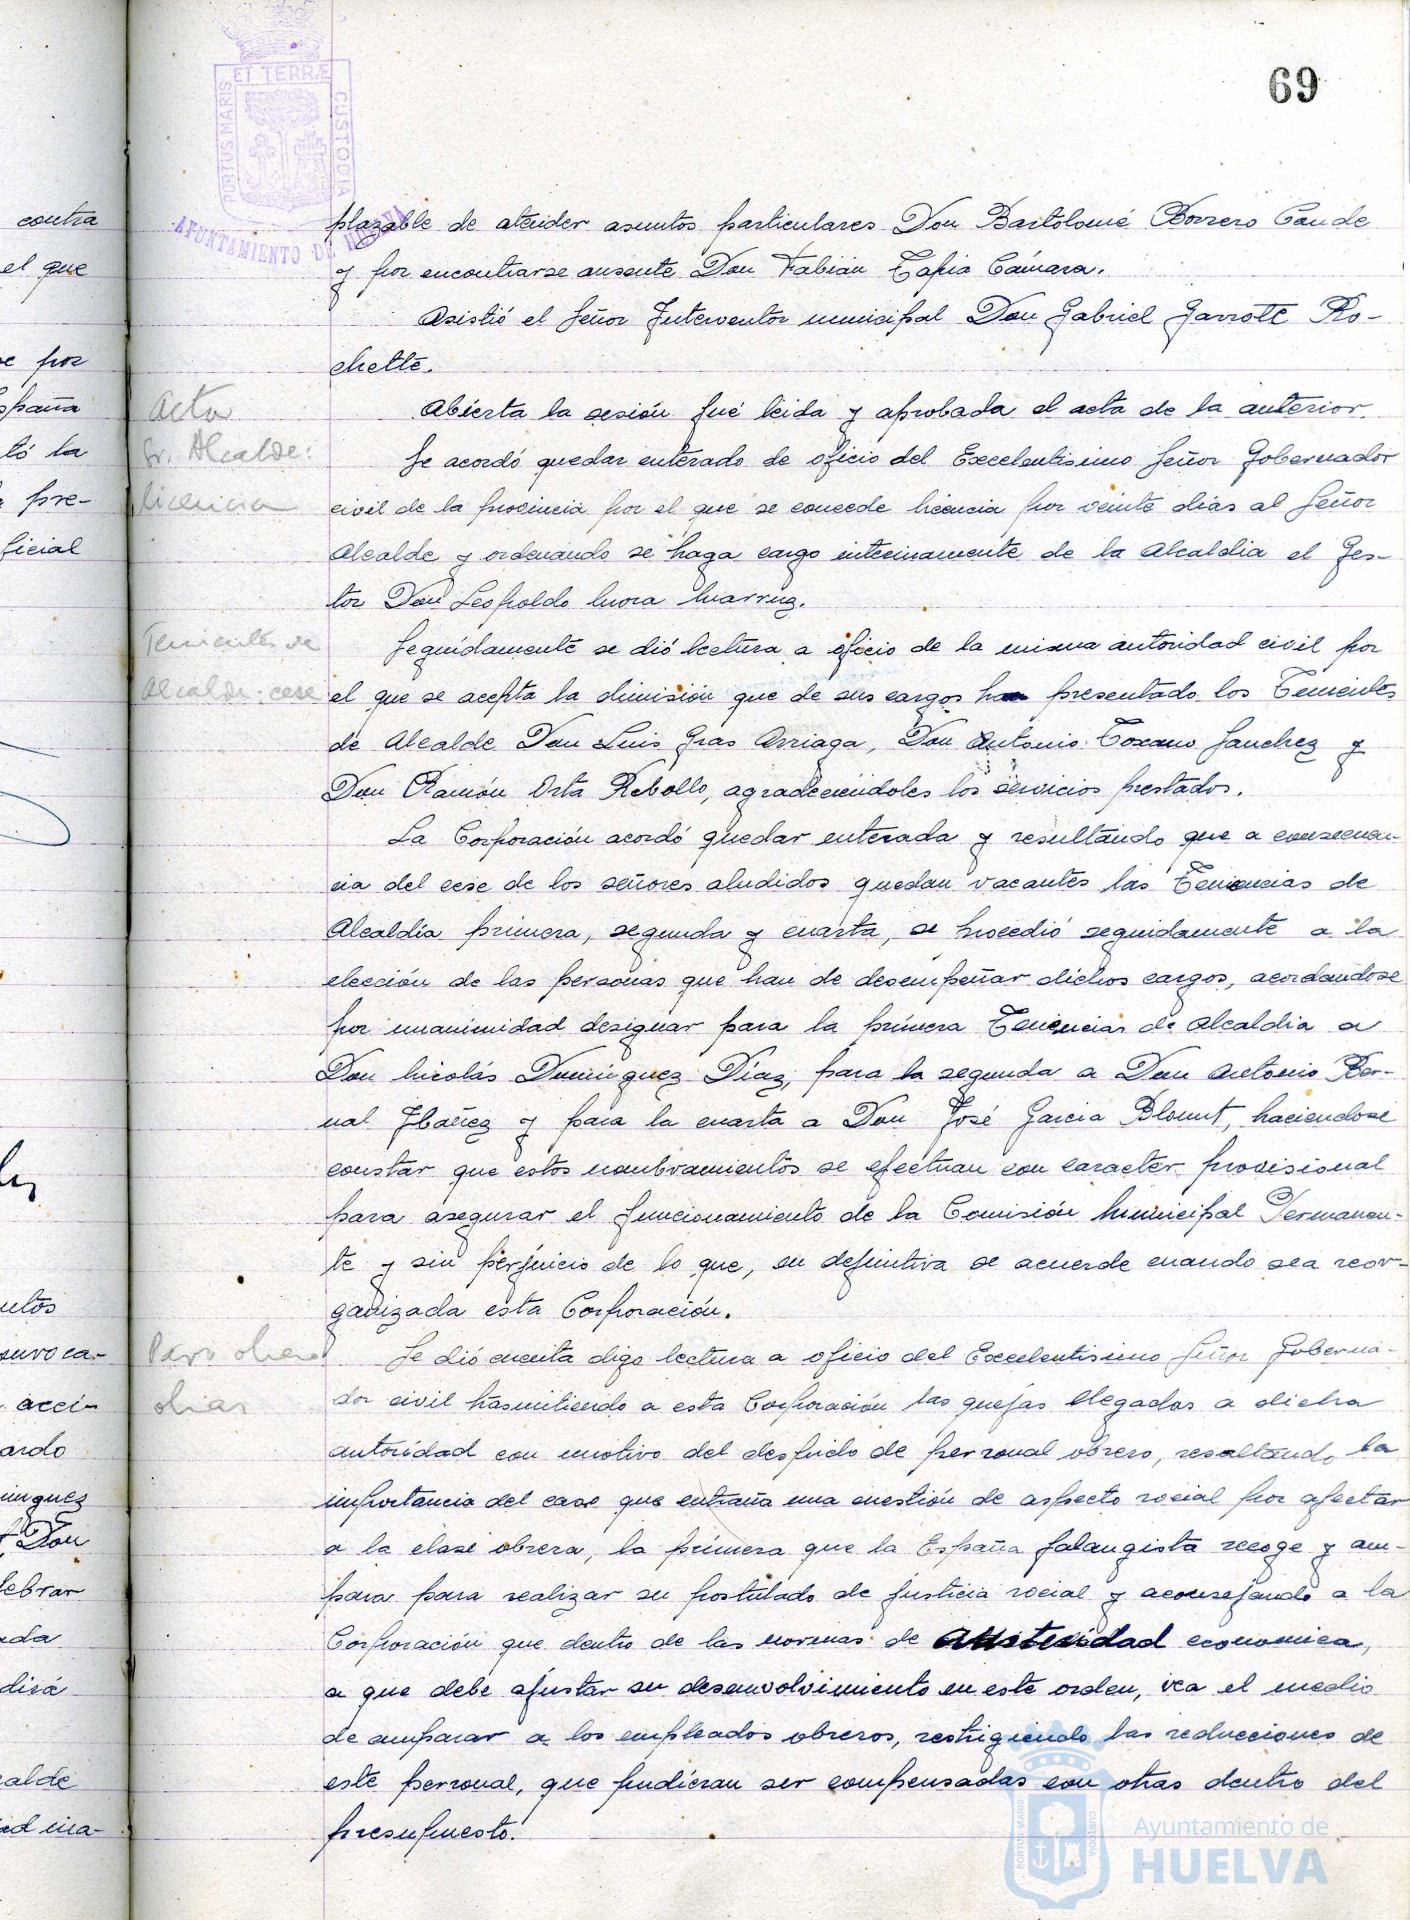 69
ET TERRÆ
PORTUS MARIS
CUSTODIA
AYUNTAMIENTO DE HUELVA
contra
el que
e por
España
tó la
pre-
ficial
ntos
onvoca-
acci-
ardo
inguez
Don
lebrar
ada
dirá
calde
ad ma-
plazable de atender asuntos particulares Don Bartolomé Borrero Conde
y por encontrarse ausente Don Fabián Tapia Cámara.
Asistió el Señor Interventor municipal Don Gabriel Garrote Ro-
chette.
Acta
Abierta la sesión fué leida y aprobada el acta de la anterior.
Sr. Alcalde:
licencia
Se acordó quedar enterado de oficio del Excelentisimo Señor Gobernador
civil de la provincia por el que se concede licencia por veinte dias al Señor
Alcalde y ordenando se haga cargo interinamente de la Alcaldia el Ges-
tor Don Leopoldo Mora
Tenientes de
Alcalde: cese
Seguidamente se dió lectura a oficio de la misma autoridad civil por
el que se acepta la dimisión que de sus cargos han presentado los Tenientes
de Alcalde Don Luis Gras Arriaga, Don Antonio Toscano Sanchez y
Don Ramón Orta Rebollo, agradeciéndoles los servicios prestados.
La Corporación acordó quedar enterada y resultando que a consecuen-
cia del cese de los señores aludidos quedan vacantes las Tenencias de
Alcaldía primera, segunda y cuarta, se procedió seguidamente a la
elección de las personas que han de desempeñar dichos cargos, acordandose
por unanimidad designar para la primera Tenencias de Alcaldia a
Don Nicolás Dominguez Díaz, para la segunda a Don Antonio Ber-
nal Ibañez y para la cuarta a Don José Garcia Blount, haciendose
constar que estos nombramientos se efectuan con caracter provisional
para asegurar el funcionamiento de la Comisión Municipal Permanen-
te y sin perjuicio de lo que, en definitiva se acuerde cuando sea reor-
ganizada esta Corporación.
Paro obrero
obras
Se dió cuenta digo lectura a oficio del Excelentisimo Señor Goberna-
dor civil trasmitiendo a esta Corporación las quejas llegadas a dicha
autoridad con motivo del despido de personal obrero, resaltando la
importancia del caso que entraña una cuestión de aspecto social por afectar
a la clase obrera, la primera que la España falangista recoge y am-
para para realizar su postulado de justicia social y aconsejando a la
Corporación que dentro de las normas de austeridad economica,
a que debe ajustar su desenvolvimiento en este orden, vea el medio
de amparar a los empleados obreros, restrigiendo las reducciones de
este personal, que pudieran ser compensadas con otras dentro del
presupuesto.
PORTUS MARIS
CUSTODIA
Ayuntamiento de
HUELVA